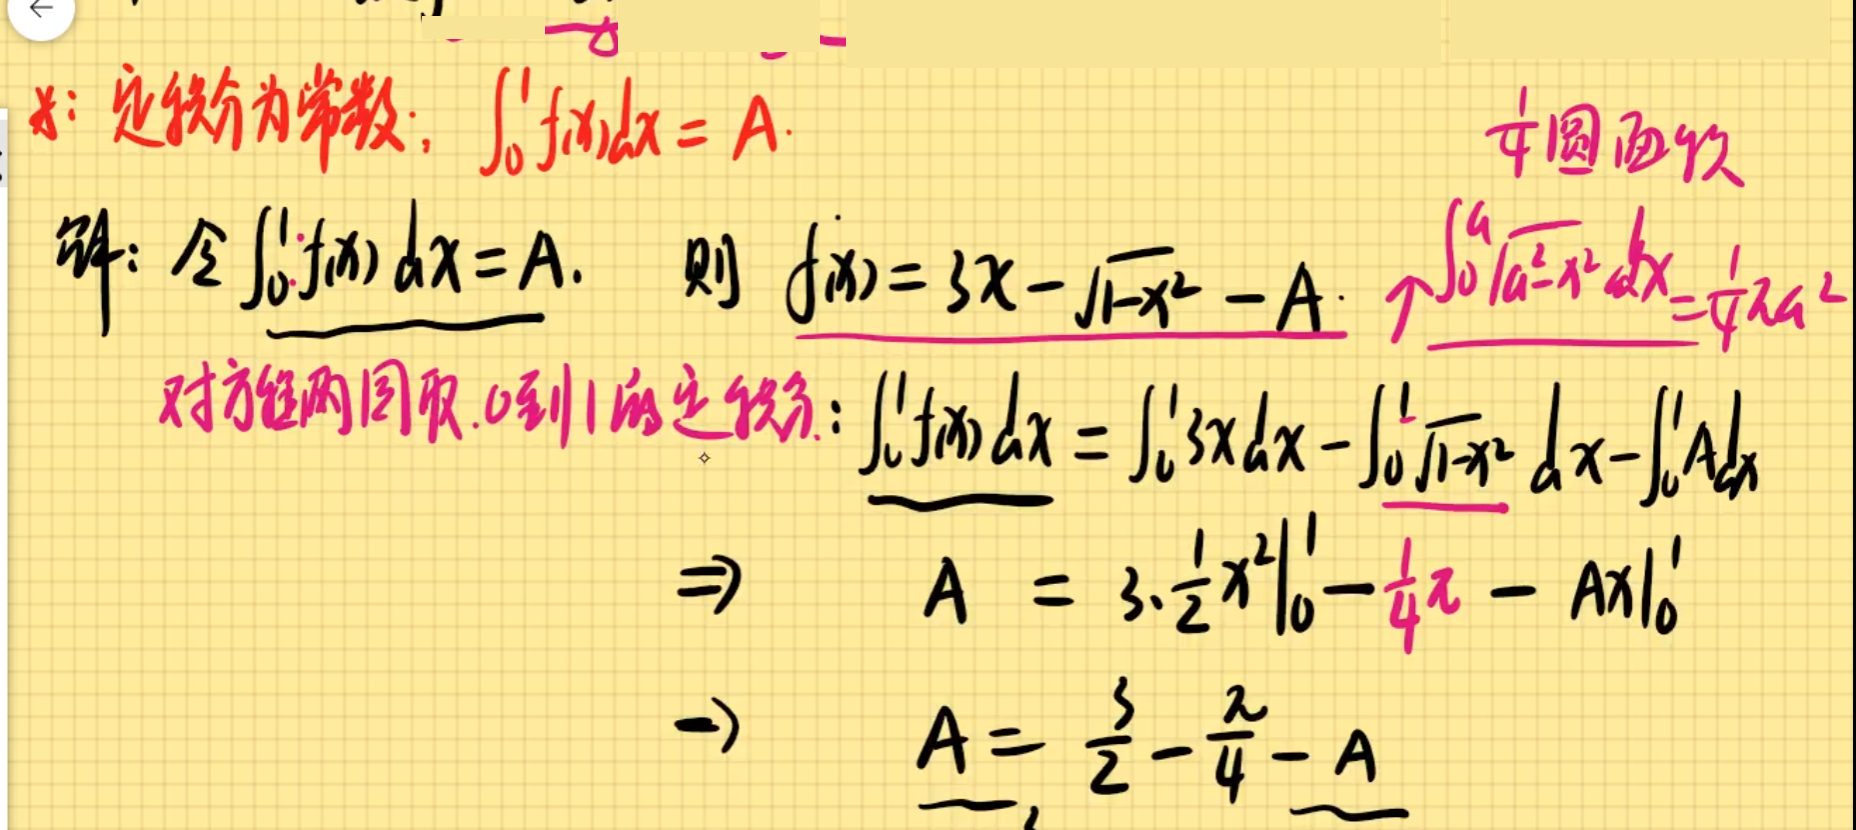 ※: 定积分为常数; ∫₀¹ f(x)dx = A.
1/4 圆面积
解: 令 ∫₀¹ f(x) dx = A. 则 f(x) = 3x - √(1-x²) - A. ↑ ∫₀ᵃ √(a²-x²) dx = 1/4 πa²
对方程两同取.0到1的定积分: ∫₀¹ f(x) dx = ∫₀¹ 3x dx - ∫₀¹ √(1-x²) dx - ∫₀¹ A dx
⇒ A = 3·1/2 x²|₀¹ - 1/4 π - Ax|₀¹
→ A = 3/2 - π/4 - A